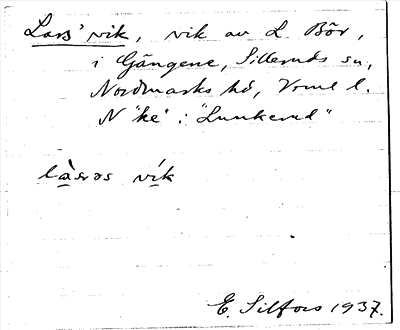 Lars' vik, vik av L. Bör,
i Gängene, Silleruds sn,
Nordmarks hd, Vrml l.
N "ke": "Lunkerud"
làsəs vík
E. Silfors 1937.